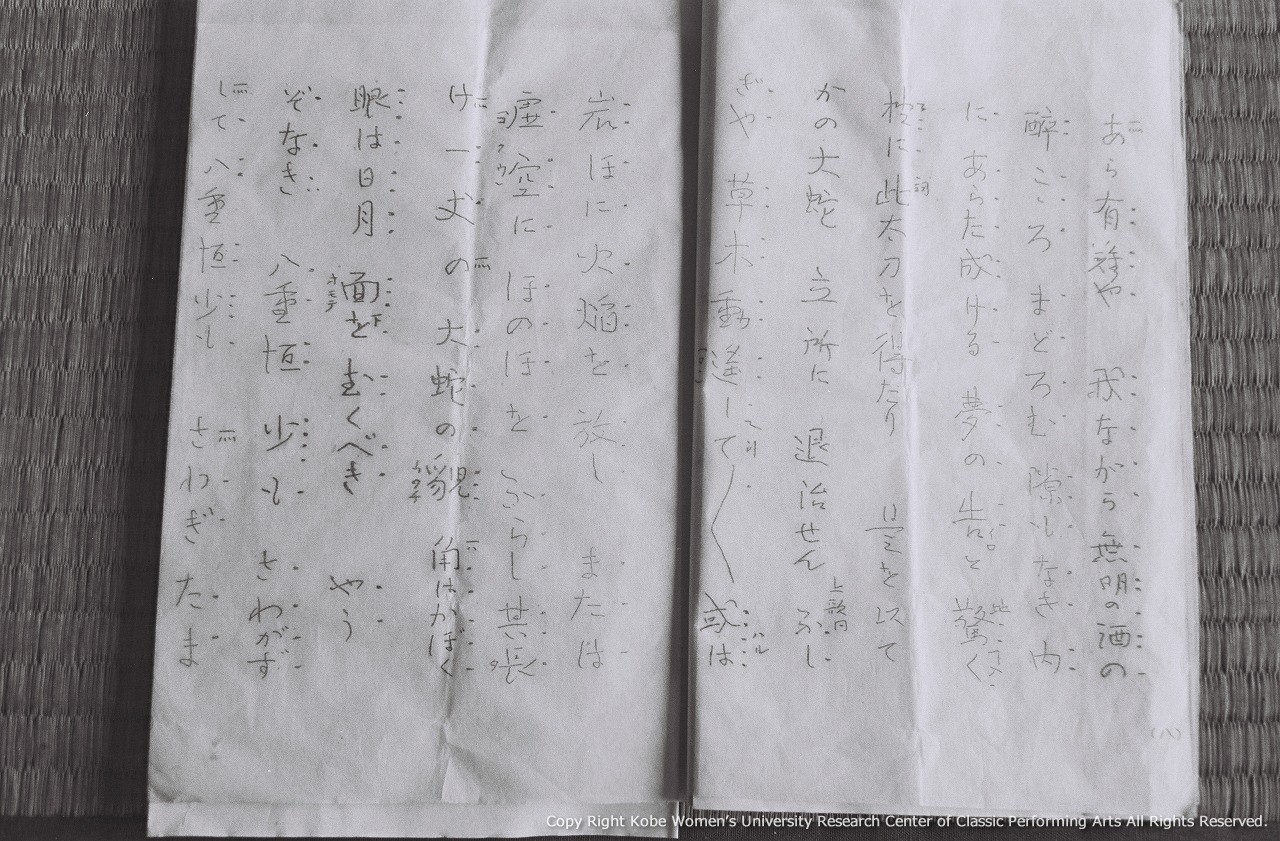 あら有難や 我ながら 無明の酒の
酔 こころ まどろむ 隙もなき内
に あらた成ける 夢の告と 驚く
枕に 此太刀を得たり 是を以て
かの大蛇 立所に 退治せん ふし
ぎや 草木動遥して〱 或は
岩ほに火焔を 放し または
虚空に ほのほを ふらし 其長
け一丈の 大蛇の貌 角はかぼく
眼は日月 面を むくべき やう
ぞなき 八重垣 少も さわがず
して 八重垣少も さわぎ たま
ヨクウ
ウン
オモテ
下
上歌
ハル
(八)
Copy Right Kobe Women's University Research Center of Classic Performing Arts All Rights Reserved.